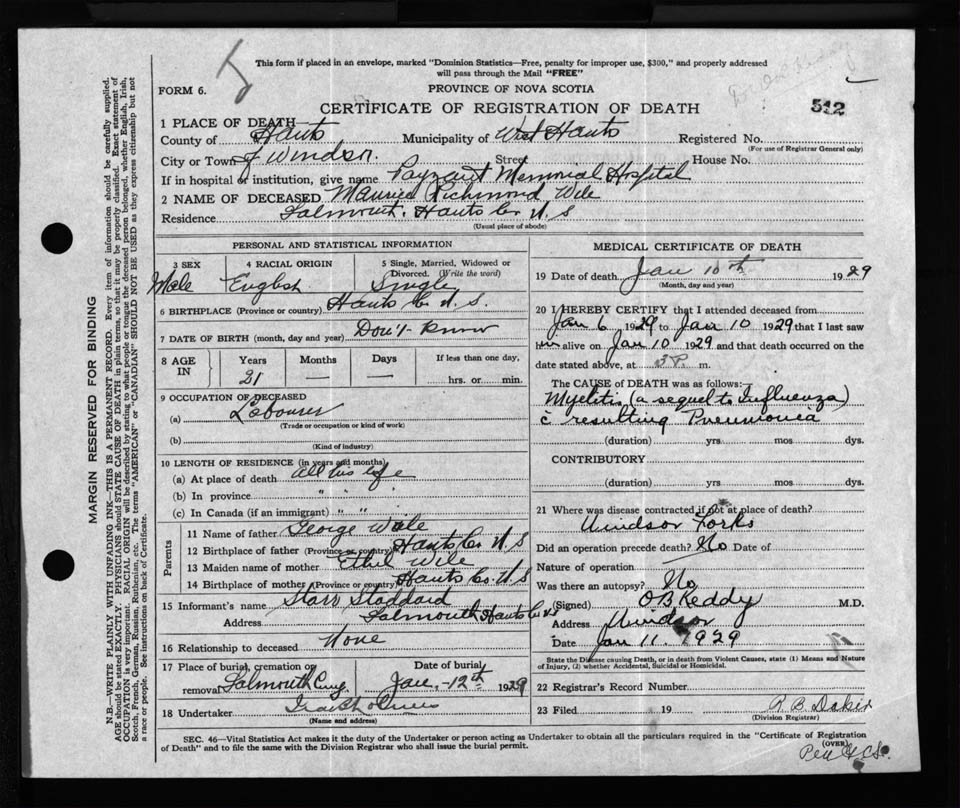 This form if placed in an envelope, marked "Dominion Statistics—Free, penalty for improper use, $300," and properly addressed
will pass through the Mail "FREE"
FORM 6.
PROVINCE OF NOVA SCOTIA
CERTIFICATE OF REGISTRATION OF DEATH
512
1 PLACE OF DEATH
County of Hants Municipality of West Hants Registered No.
(For use of Registrar General only)
City or Town of Windsor. Street House No.
If in hospital or institution, give name Payzant Memorial Hospital
2 NAME OF DECEASED Maurice Richmond Wile
Residence Falmouth. Hants Co. N. S
(Usual place of abode)
PERSONAL AND STATISTICAL INFORMATION
3 SEX 4 RACIAL ORIGIN 5 Single, Married, Widowed or
Divorced. (Write the word)
Male English Single
6 BIRTHPLACE (Province or country) Hants Co N. S.
7 DATE OF BIRTH (month, day and year) Don't Know
8 AGE IN Years Months Days If less than one day,
21 — — hrs. or min.
9 OCCUPATION OF DECEASED
(a) Labourer
(Trade or occupation or kind of work)
(b)
(Kind of industry)
10 LENGTH OF RESIDENCE (in years and months)
(a) At place of death all his life
(b) In province " " "
(c) In Canada (if an immigrant) " " "
Parents
11 Name of father George Wile
12 Birthplace of father (Province or country) Hants Co. N S
13 Maiden name of mother Ethel Wile
14 Birthplace of mother (Province or country) Hants Co. N. S
15 Informant's name Starr Stoddard
Address Falmouth Hants Co NS
16 Relationship to deceased None
17 Place of burial, cremation or Date of burial
removal Falmouth Jan. -12th 1929
18 Undertaker
(Name and address)
MEDICAL CERTIFICATE OF DEATH
19 Date of death Jan 10th 1929
(Month, day and year)
20 I HEREBY CERTIFY that I attended deceased from
Jan 6 1929 to Jan 10 1929 that I last saw
him alive on Jan 10 1929 and that death occurred on the
date stated above, at 3 P. m.
The CAUSE OF DEATH was as follows:
Myelitis (a sequel to Influenza)
c̄ resulting Pneumonia
(duration) yrs. mos. dys.
CONTRIBUTORY
(duration) yrs. mos. dys.
21 Where was disease contracted if not at place of death?
Windsor Forks
Did an operation precede death? No Date of
Nature of operation —
Was there an autopsy? No
(Signed) O B Keddy M.D.
Address Windsor
Date Jan 11. 1929
State the Disease causing Death, or in death from Violent Causes, state (1) Means and Nature
of Injury, (2) whether Accidental, Suicidal or Homicidal.
22 Registrar's Record Number
23 Filed 19 R. B. Daker
(Division Registrar)
SEC. 46—Vital Statistics Act makes it the duty of the Undertaker or person acting as Undertaker to obtain all the particulars required in the "Certificate of Registration
of Death" and to file the same with the Division Registrar who shall issue the burial permit.
(OVER)
MARGIN RESERVED FOR BINDING
N.B.—WRITE PLAINLY WITH UNFADING INK—THIS IS A PERMANENT RECORD. Every item of information should be carefully supplied.
AGE should be stated EXACTLY. PHYSICIANS should STATE CAUSE OF DEATH in plain terms, so that it may be properly classified. Exact statement of
OCCUPATION is very important. RACIAL ORIGIN will be described by stating to what people or tongue the deceased person belonged, whether English, Irish,
Scotch, French, German, Russian, Ruthenian, etc. The terms "AMERICAN" or "CANADIAN" SHOULD NOT BE USED as they express citizenship but not
a race or people. See instructions on back of Certificate.